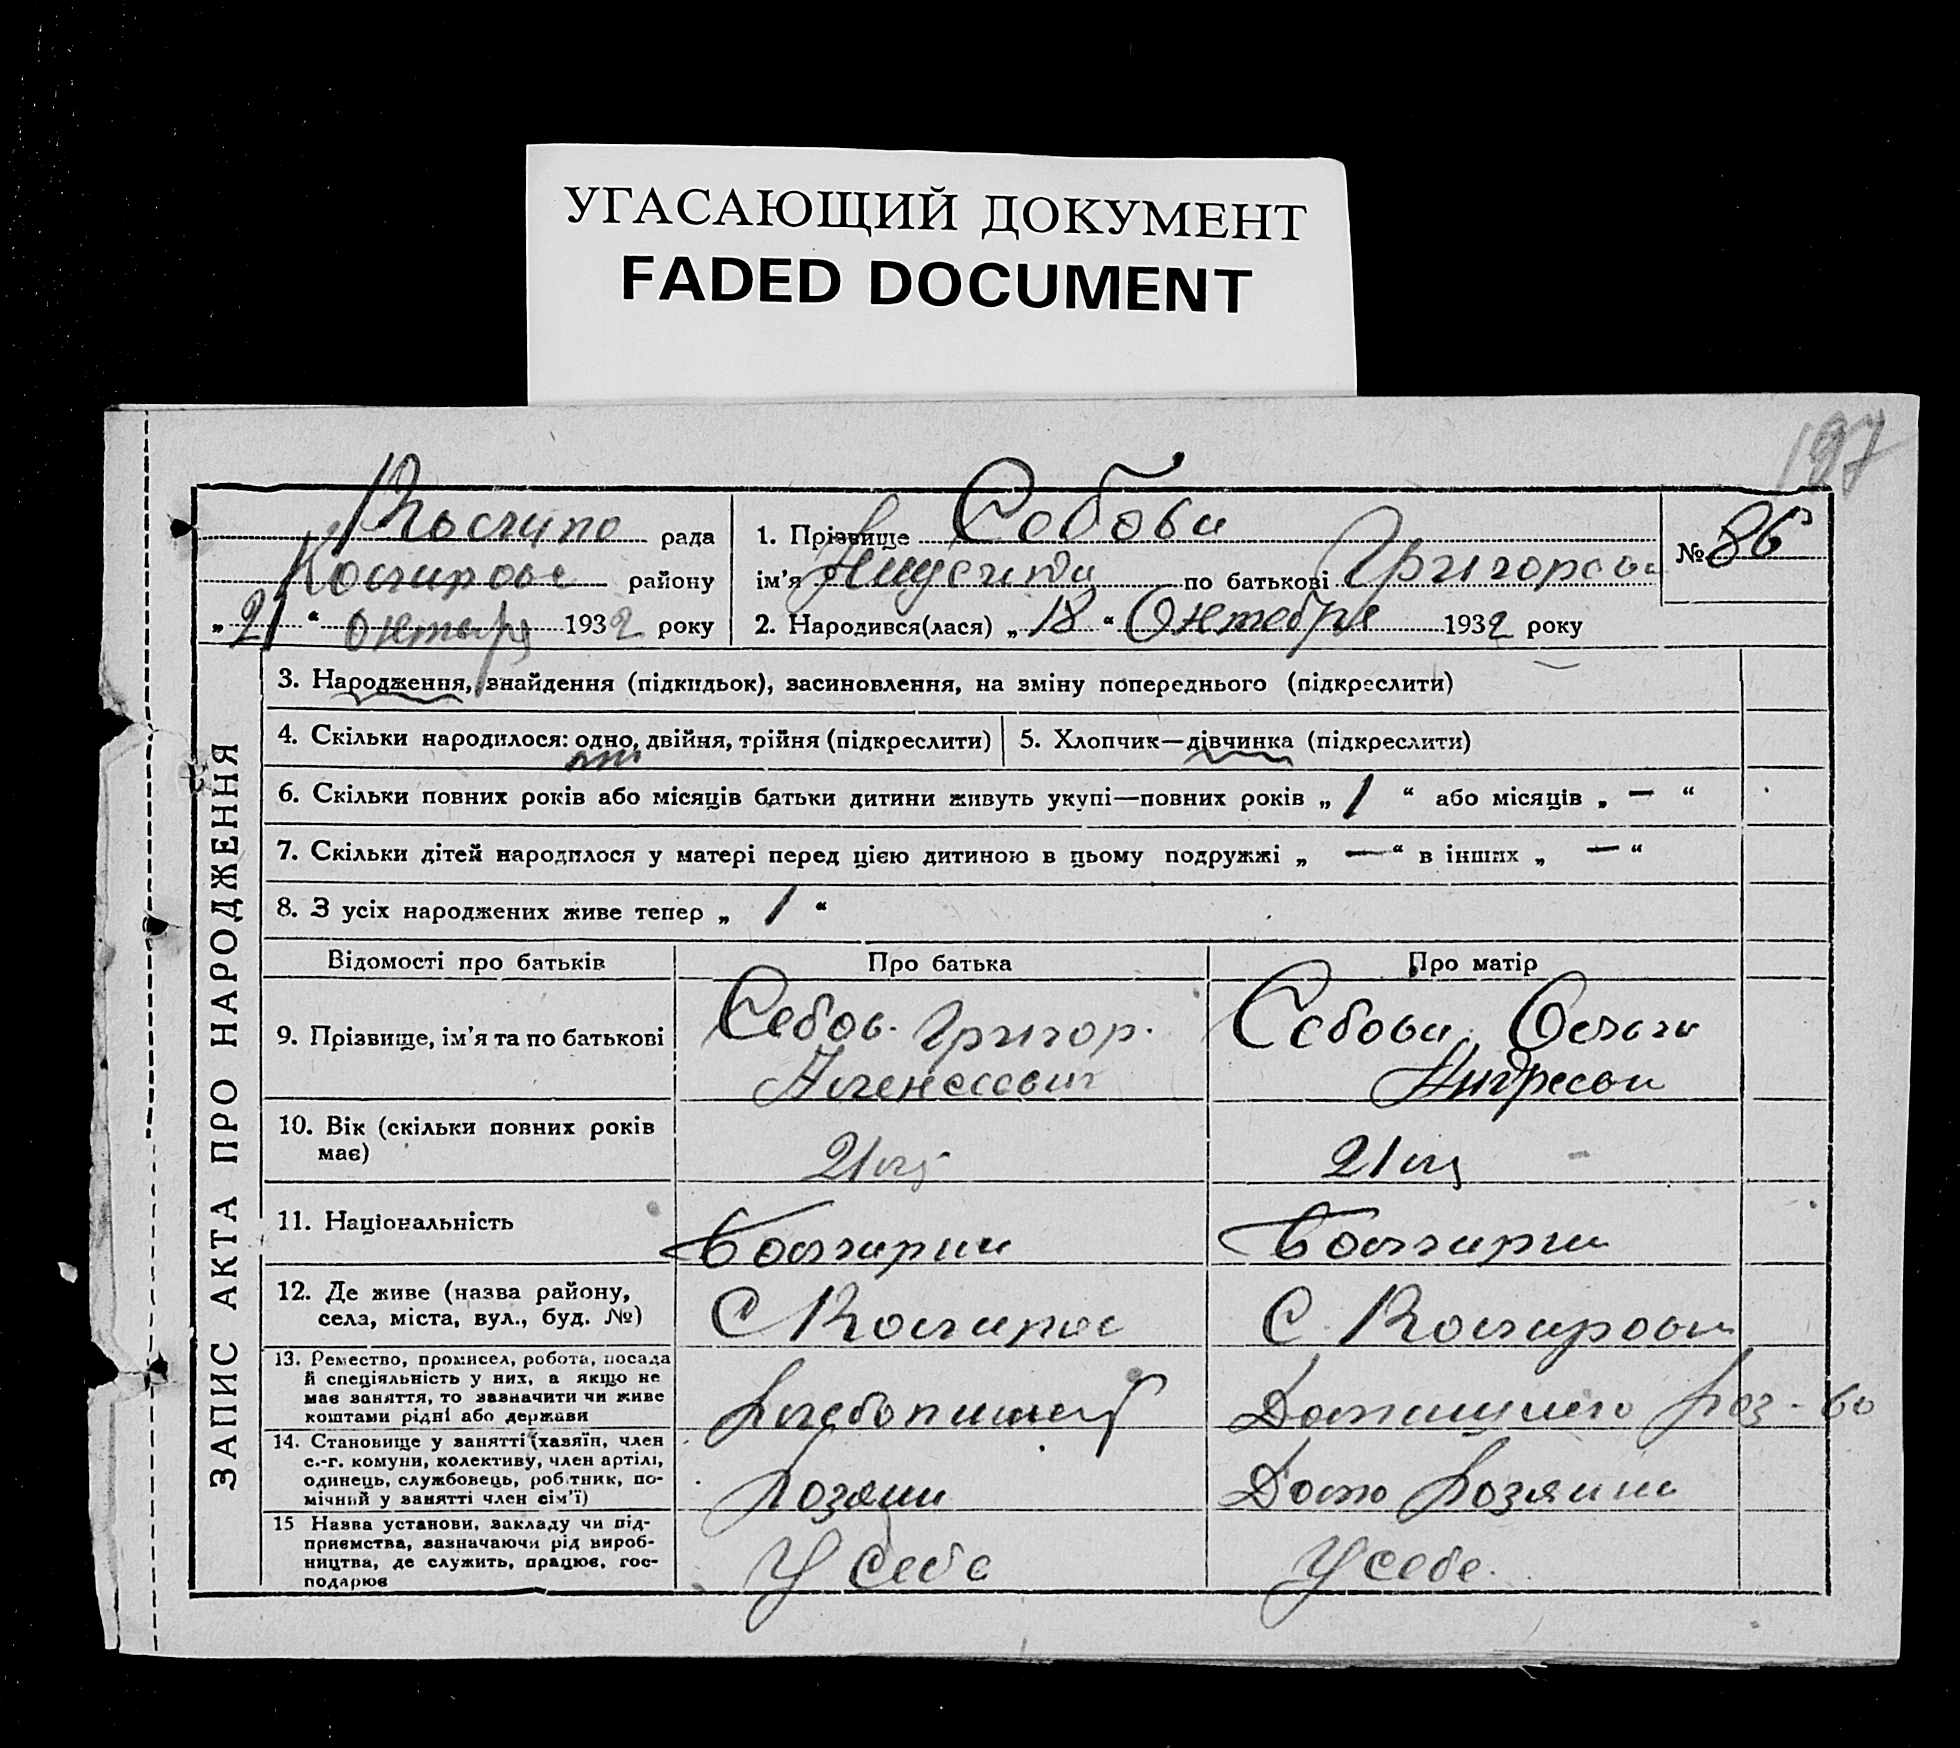 УГАСАЮЩИЙ ДОКУМЕНТ
FADED DOCUMENT
197
рада
району
„21“ октября 1932 року
1. Прізвище Себова
ім'я по батькові Григорова
2. Народився(лася) „18“ Октебря 1932 року
№ 86
ЗАПИС АКТА ПРО НАРОДЖЕННЯ
3. Народження, знайдення (підкидьок), засиновлення, на зміну попереднього (підкреслити)
4. Скільки народилося: одно, двійня, трійня (підкреслити)
5. Хлопчик—дівчинка (підкреслити)
6. Скільки повних років або місяців батьки дитини живуть укупі—повних років „ 1 “ або місяців „ — “
7. Скільки дітей народилося у матері перед цією дитиною в цьому подружжі „ — “ в інших „ — “
8. З усіх народжених живе тепер „ 1 “
Відомості про батьків
Про батька
Про матір
9. Прізвище, ім'я та по батькові
Себов. Григор.
Себова
Андреева
10. Вік (скільки повних років
має)
21
21
11. Національність
Болгарин
Болгарин
12. Де живе (назва району,
села, міста, вул., буд. №)
С
С.
13. Ремество, промисел, робота, посада
й спеціяльність у них, а якщо не
має заняття, то зазначити чи живе
коштами рідні або держави
Хлебопашец
Домашнего хоз-во
14. Становище у занятті (хазяїн, член
с.-г. комуни, колективу, член артілі,
одинець, службовець, робітник, по-
мічний у занятті член сім'ї)
Хозяин
Дом Хозяина
15 Назва установи, закладу чи під-
приємства, зазначаючи рід вироб-
ництва, де служить, працює, гос-
подарює
У себе
У себе.